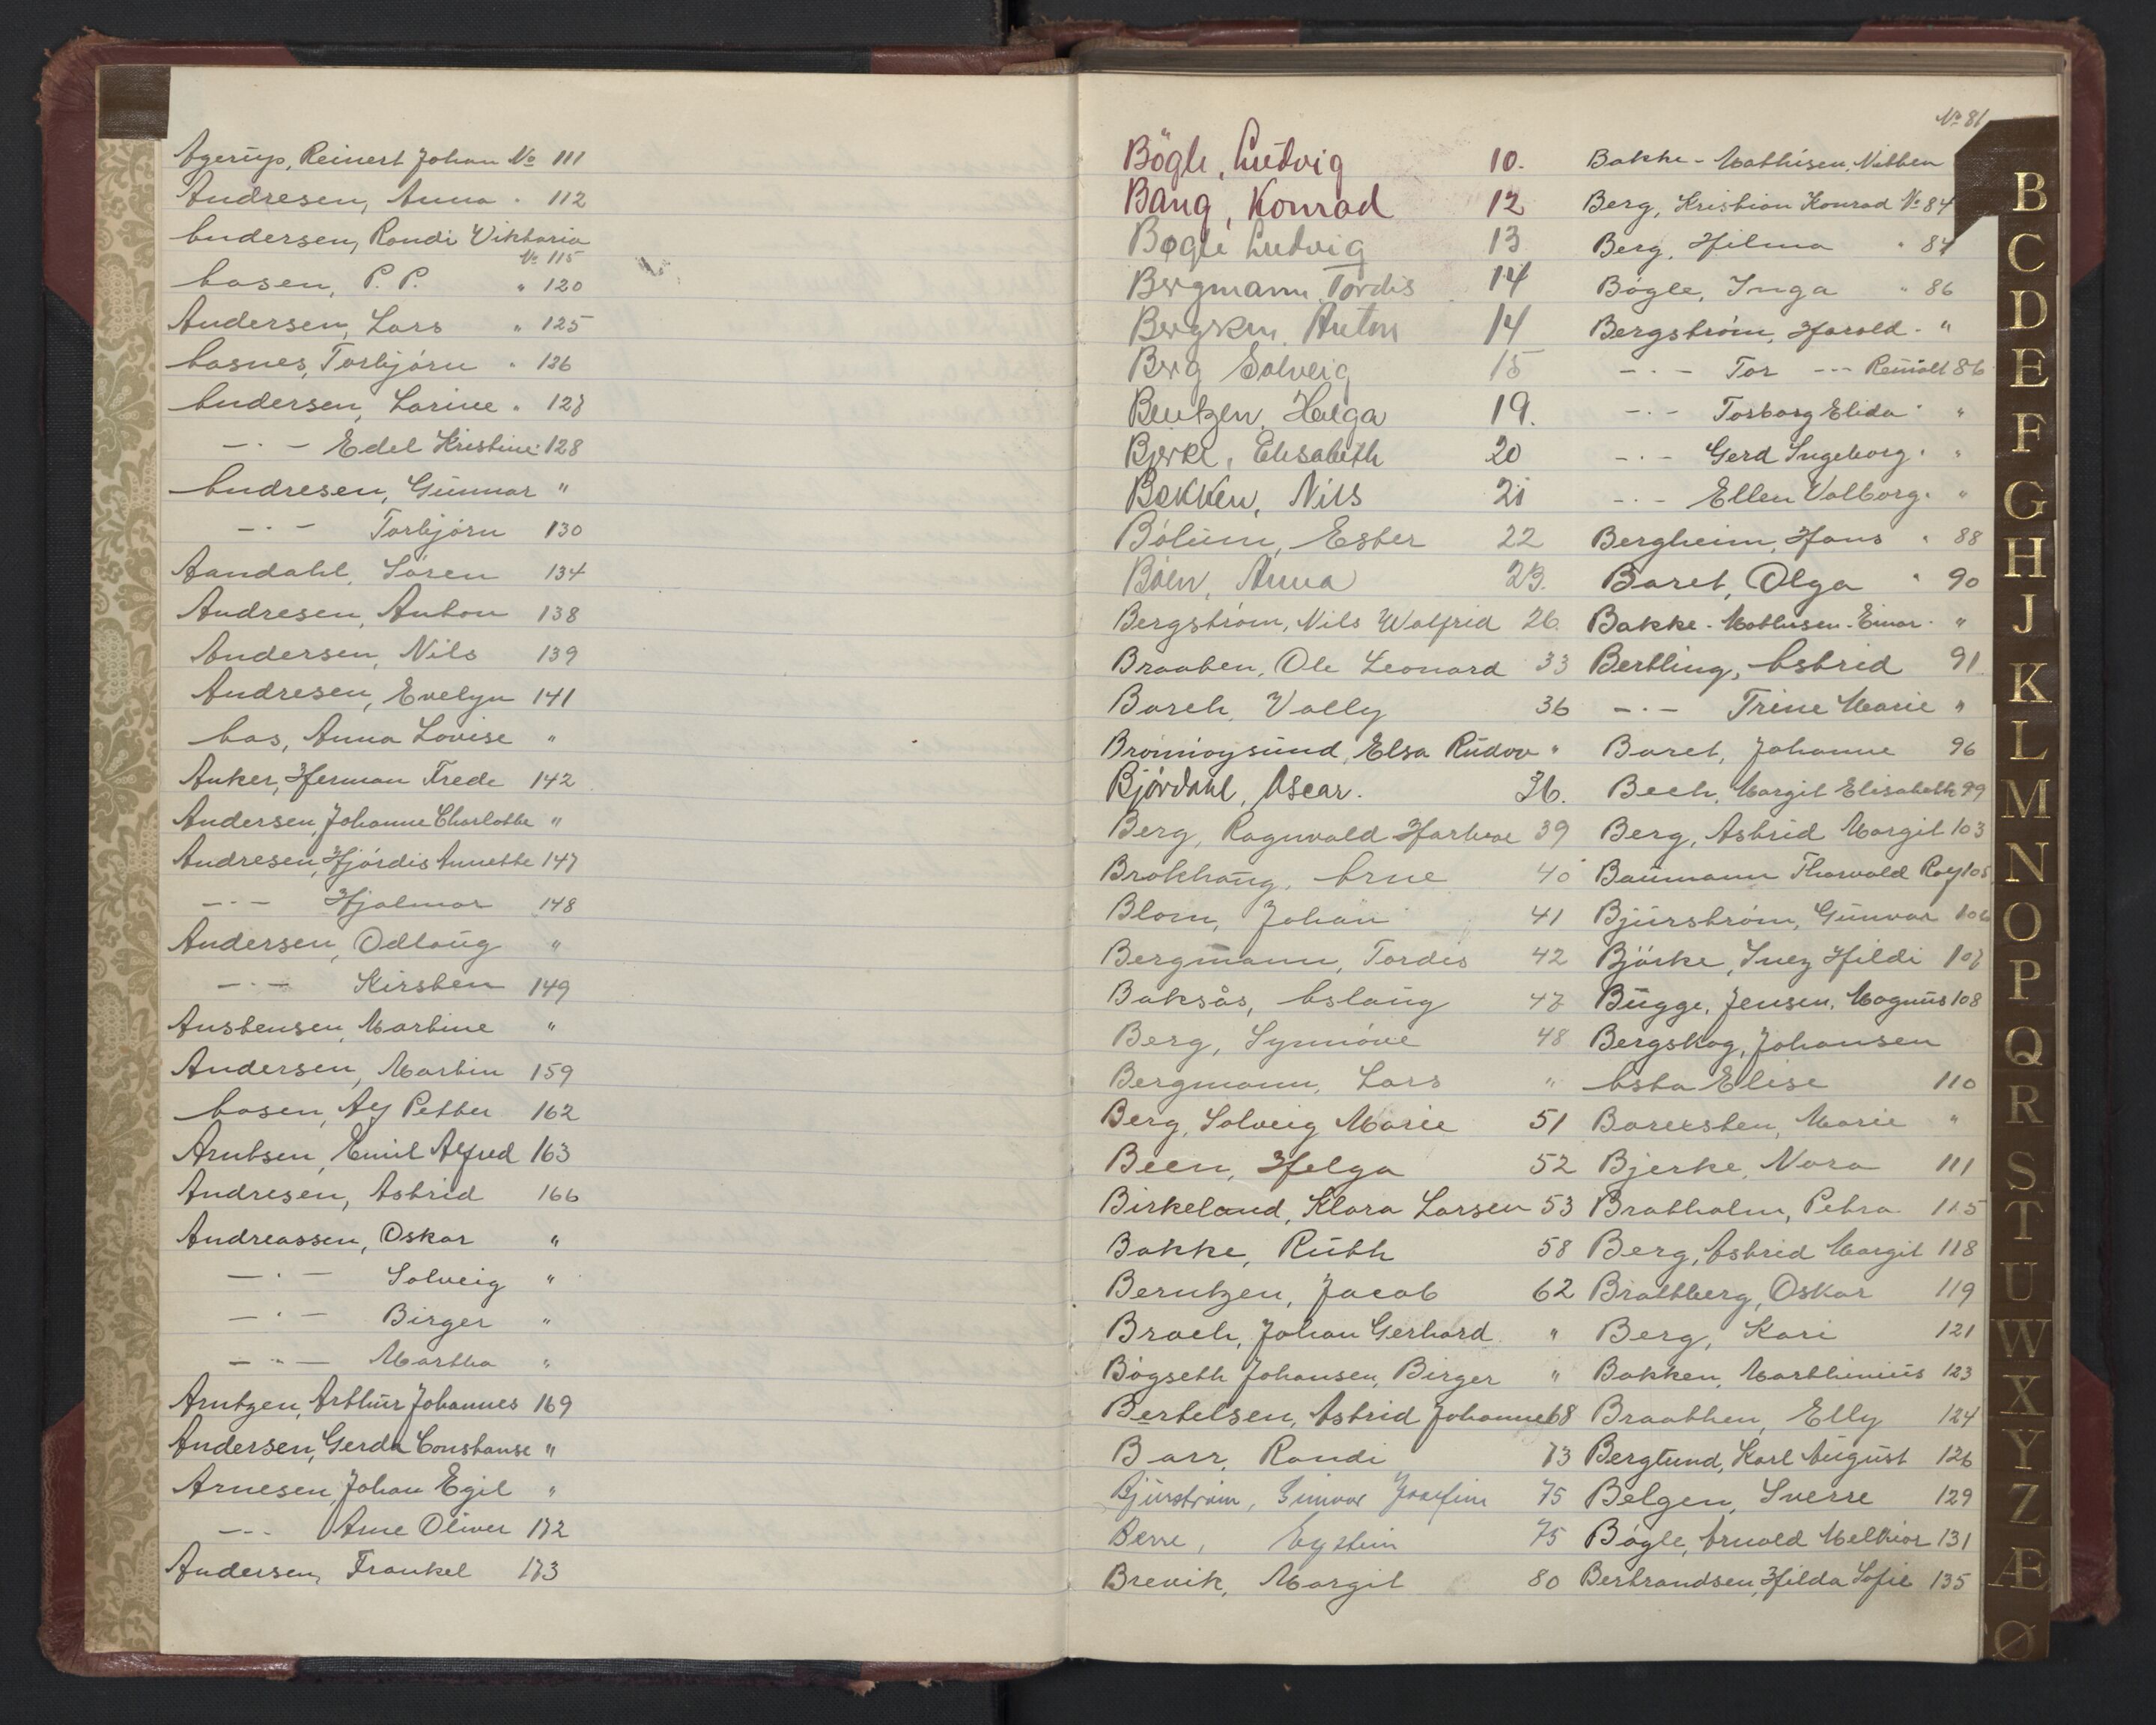 Agerup, Reinert Johan No 111
Andresen, Anna " 112
Andersen, Randi Viktoria
No 115
Aasen, P. P. " 120
Andersen, Lars " 125
Aasnes, Torbjørn " 126
Andersen, Larine " 127
— · — Edel Kristine " 128
Andresen, Gunnar "
— · — Torbjørn 130
Aandahl, Sören 134
Andresen, Anton 138
Andersen, Nils 139
Andresen, Evelyn 141
Aas, Anna Lovise "
Anker, Herman Frede 142
Andersen, Johanne Charlotte "
Andresen, Hjördis Annette 147
— · — Hjalmar 148
Andersen, Odlaug "
— · — Kirsten 149
Austensen, Martine "
Andersen, Martin 159
Aasen, Petter 162
Arntsen, Emil Alfred 163
Andresen, Astrid 166
Andreassen, Oskar "
— · — Solveig "
— · — Birger "
— · — Martha "
Arntzen, Arthur Johannes 169
Andersen, Gerda Constanse "
Arnesen, Johan Egil "
— · — Arne Oliver 172
Andersen, Frankel 173
Bögle, Ludvig 10.
Bang, Konrad 12
Bøgle Ludvig 13
Bergmann, Tordis 14
Anton 14
Berg Solveig 15
Bentzen, Helga 19.
Bjerke, Elisabeth 20
Bakken, Nils 21
Bölum, Ester 22
Böen, Anna 23.
Bergström, Nils Walfrid 26.
Braaten, Ole Leonard 33
Barch, Vally 36
Brönnöysund, Elsa "
Bjørdahl, Oscar. 36.
Berg, Ragnvald 39
Brakhaug, Arne 40
Blom, Johan 41
Bergmann, Tordis 42
Baksås, Aslaug 47
Berg, Synnöve 48
Bergmann, Lars "
Berg, Solveig Marie 51
Been, Helga 52
Birkeland, Klara Larsen 53
Bakke, Ruth 58
Berntzen, Jacob 62
Broch, Johan Gerhard "
Bögseth Johansen, Birger "
Bertelsen, Astrid Johanne 68
Barr, Randi 73
Bjurström, Gunvor Josefine 75
Berre, Eystein 75
Brevik, Margit 80
No 81
Bakke - Mathisen,
Berg, Kristian Konrad No 84
Berg, Hilma " 84
Bögle, Inga " 86
Bergström, Harald - "
— · — Tor --- Reinolt 86
— · — Torborg Elida "
— · — Gerd Ingeborg "
— · — Ellen Valborg "
Bergheim, Hans " 88
Baret, Olga " 90
Bakke - Mathisen - Einar - "
Bertling, Astrid 91
— · — Trine Marie "
Baret, Johanne 96
Bech, Margit Elisabeth 99
Berg, Astrid Margit 103
Baumann Thorvald Roy 105
Bjurström, Gunvor 106
Björke, Inez Hildi 107
Bugge, Jensen, Magnus 108
Bergskog, Johansen
Asta Elise 110
Marie "
Bjerke, Nora 111
Bratholm, Petra 115
Berg, Astrid Margit 118
Brattberg, Oskar 119
Berg, Kari 121
Bakken, Marthinius 123
Braathen, Elly 124
Berglund, Karl August 126
Belgen, Sverre 129
Bögle, Arnold Melkior 131
Bertrandsen, Hilda Sofie 135
B
C
D
E
F
G
H
J
K
L
M
N
O
P
Q
R
S
T
U
W
X
Y
Z
Æ
Ø